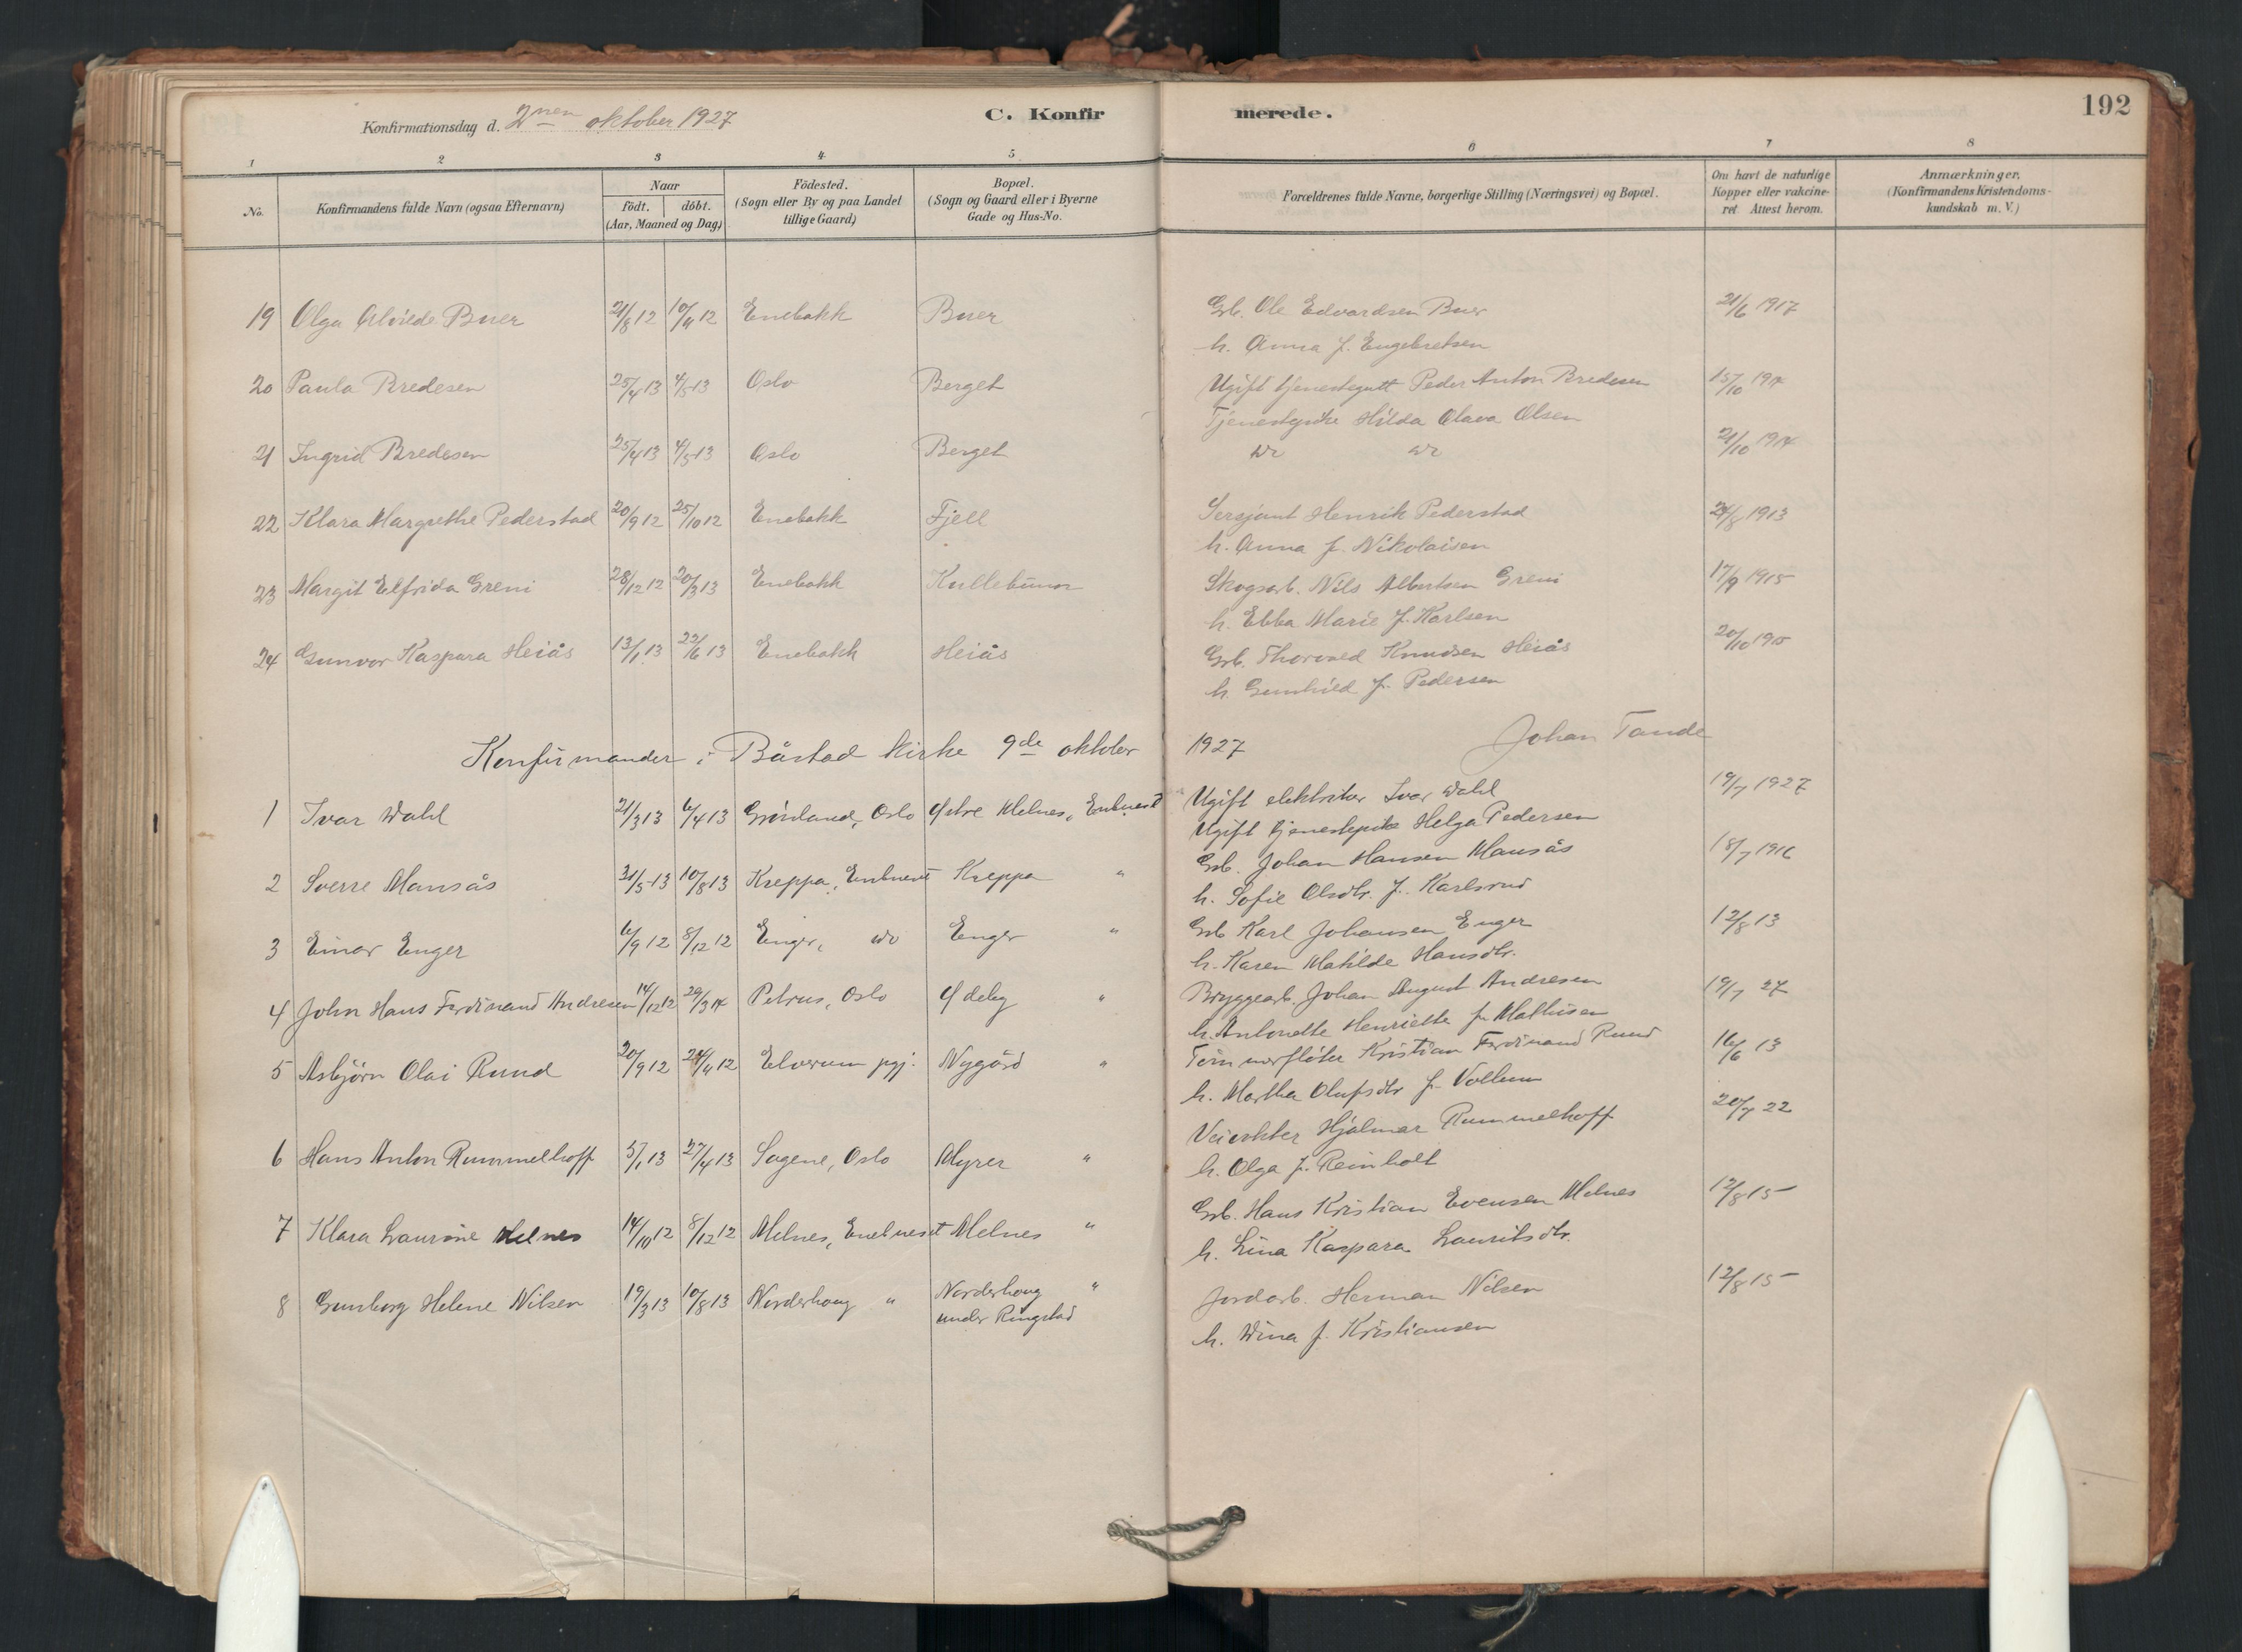 192
Konfirmationsdag d. 2nen oktober 1927 C. Konfir merede.
1 2 3 4 5 6 7 8
No. Konfirmandens fulde Navn (ogsaa Efternavn) Naar Födt. döbt. (Aar, Maaned og Dag) Födested. (Sogn eller By og paa Landet tillige Gaard) Bopæl. (Sogn og Gaard eller i Byerne Gade og Hus-No. Forældrenes fulde Navne, borgerlige Stilling (Næringsvei) og Bopæl. Om havt de naturlige Kopper eller vakcineret Attest herom. Anmærkninger. (Konfirmandens Kristendomskundskab m. V.)
19 Olga Alvilde Buer 21/8 12 10/11 12 Enebakk Buer Grb. Ole Edvardsen Buer 21/6 1917
h. Anna f. Engebretsen
20 Paula Bredesen 25/4 13 4/5 13 Oslo Berget Ugift tjenestegutt Peder Anton Bredesen 15/10 1914
Tjenestepike Hilda Olava Olsen
21 Ingrid Bredesen 25/4 13 4/5 13 Oslo Berget do do 21/10 1914
22 Klara Margrethe Pederstad 20/9 12 25/10 12 Enebakk Fjell Sersjant Henrik Pederstad 24/8 1913
h. Anna f. Nikolaisen
23 Margit Elfrida Greni 28/12 12 20/3 13 Enebakk Kullebunn Skogsarb. Nils Albertsen Greni 17/9 1915
h. Ebba Marie f. Karlsen
24 Gunvor Kaspara Heiås 13/1 13 22/6 13 Enebakk Heiås Grb. Thorvald Knudsen Heiås 20/10 1915
h. Gunhild f. Pedersen
Johan Tande
Konfirmander i Båstad kirke 9de oktober 1927
1 Ivar Wahl 21/3 13 6/4 13 Grønland, Oslo Østre Melnes, Enebneset Ugift elektriker Ivar Wahl 19/7 1927
Ugift tjenestepike Helga Pedersen
2 Sverre Mansås 31/5 13 10/8 13 Kreppa, Enebneset Kreppa " Grb. Johan Hansen Mansås 18/7 1916
h. Sofie Olsdtr. f. Karlsrud
3 Einar Enger 6/9 12 8/12 12 Enger, do Enger " Grb Karl Johansen Enger 12/8 13
h. Karen Matilde Hansdtr.
4 John Hans Ferdinand Andresen 14/12 12 29/3 14 Petrus, Oslo Ødeby " Bryggearb. Johan August Andresen 19/7 27
h. Antonette Henriette f. Mathisen
5 Asbjörn Olai Rund 20/9 12 24/11 12 Elverum pgj. Nygård " Tömmerfløter Kristian Ferdinand Rund 16/6 13
h. Martha Olufsdtr f. Vollum
6 Hans Anton Rummelhoff 5/1 13 27/4 13 Sagene, Oslo Myrer " Veivokter Hjalmar Rummelhoff 20/7 22
h. Olga f. Reinholt
7 Klara Laurine Melnes 14/10 12 8/12 12 Melnes, Enebneset Melnes " Grb. Hans Kristian Evensen Melnes 12/8 15
h. Lina Kaspara Lauritsdtr.
8 Gunborg Helene Nilsen 19/3 13 10/8 13 Norderhoug " Norderhoug " Jordarb. Herman Nilsen 12/8 15
under Ringstad h. Dina f. Kristiansen